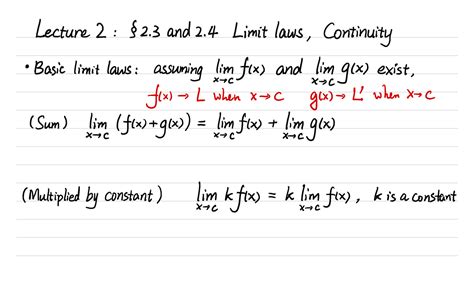 Lecture 2 : § 2.3 and 2.4 Limit laws, Continuity
• Basic limit laws: assuming lim x→c f(x) and lim x→c g(x) exist,
f(x) → L when x→c g(x) → L' when x→c
(Sum) lim x→c (f(x)+g(x)) = lim x→c f(x) + lim x→c g(x)
(Multiplied by constant) lim x→c k f(x) = k lim x→c f(x), k is a constant